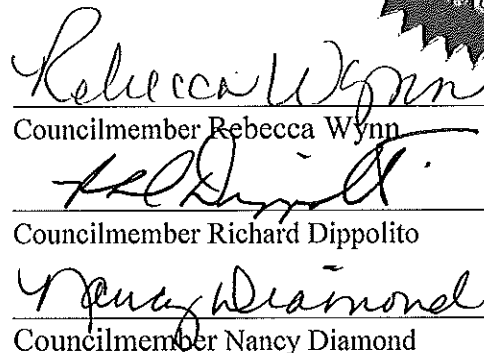 Rebecca Wynn
Councilmember Rebecca Wynn
Dippolito
Councilmember Richard Dippolito
Nancy Diamond
Councilmember Nancy Diamond